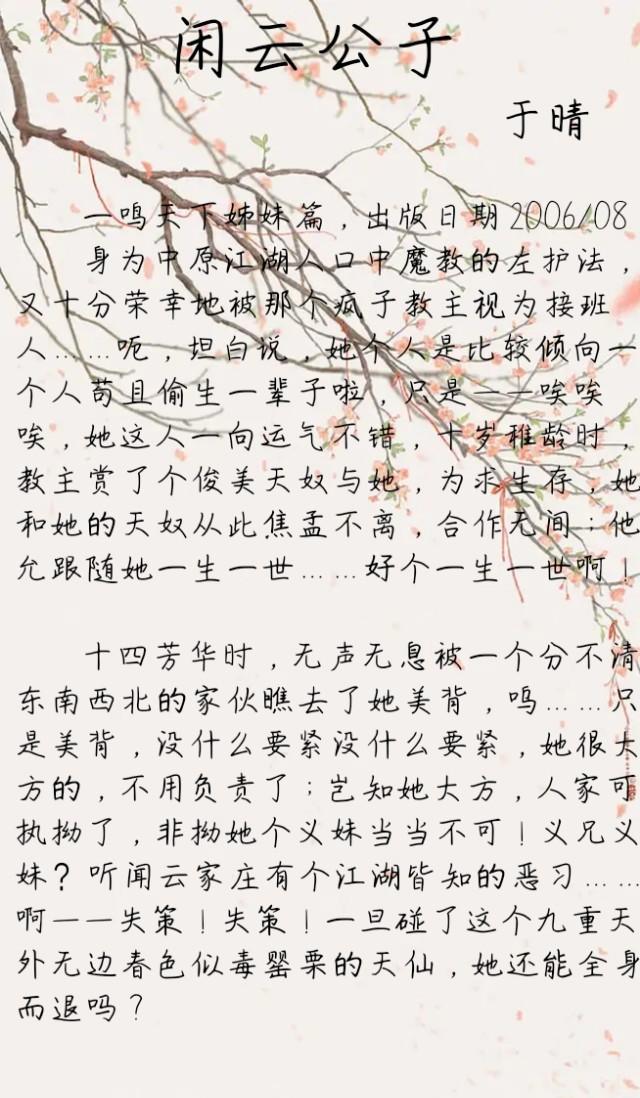 闲云公子
于晴
一鸣天下姊妹篇，出版日期2006/08
身为中原江湖人口中魔教的左护法，
又十分荣幸地被那个疯子教主视为接班
人……呃，坦白说，她个人是比较倾向一
个人苟且偷生一辈子啦，只是——唉唉
唉，她这人一向运气不错，十岁稚龄时，
教主赏了个俊美天奴与她，为求生存，她
和她的天奴从此焦孟不离，合作无间；他
允跟随她一生一世……好个一生一世啊！
十四芳华时，无声无息被一个分不清
东南西北的家伙瞧去了她美背，呜……只
是美背，没什么要紧没什么要紧，她很大
方的，不用负责了；岂知她大方，人家可
执拗了，非拗她个义妹当当不可！义兄义
妹？听闻云家庄有个江湖皆知的恶习……
啊——失策！失策！一旦碰了这个九重天
外无边春色似毒罂栗的天仙，她还能全身
而退吗？